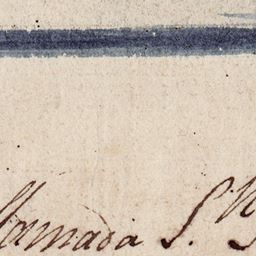 llamada S.